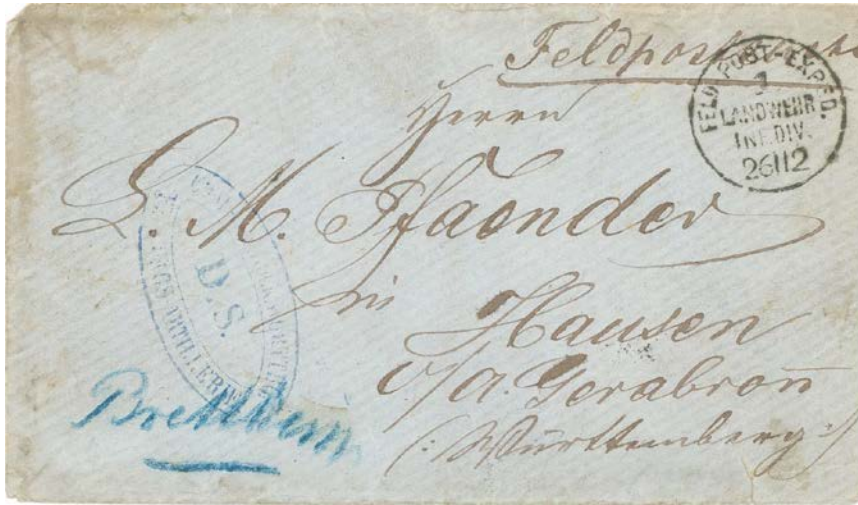 FELD POST-EXPED.
1
LANDWEHR
INF. DIV.
26 12
Herrn
G. M. Pfaender
in
Hausen
O/A. Gerabroñ
(: Württemberg :)
D. S.
ARTILLERIE
Brettheim